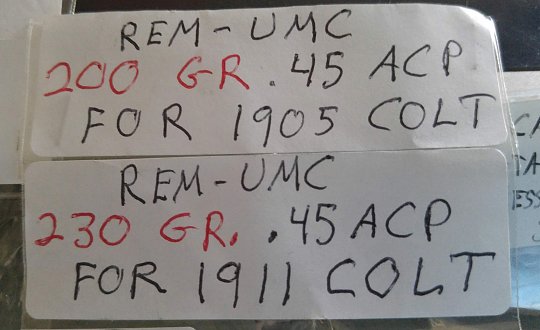 REM-UMC
200 GR. .45 ACP
FOR 1905 COLT
REM-UMC
230 GR. .45 ACP
FOR 1911 COLT